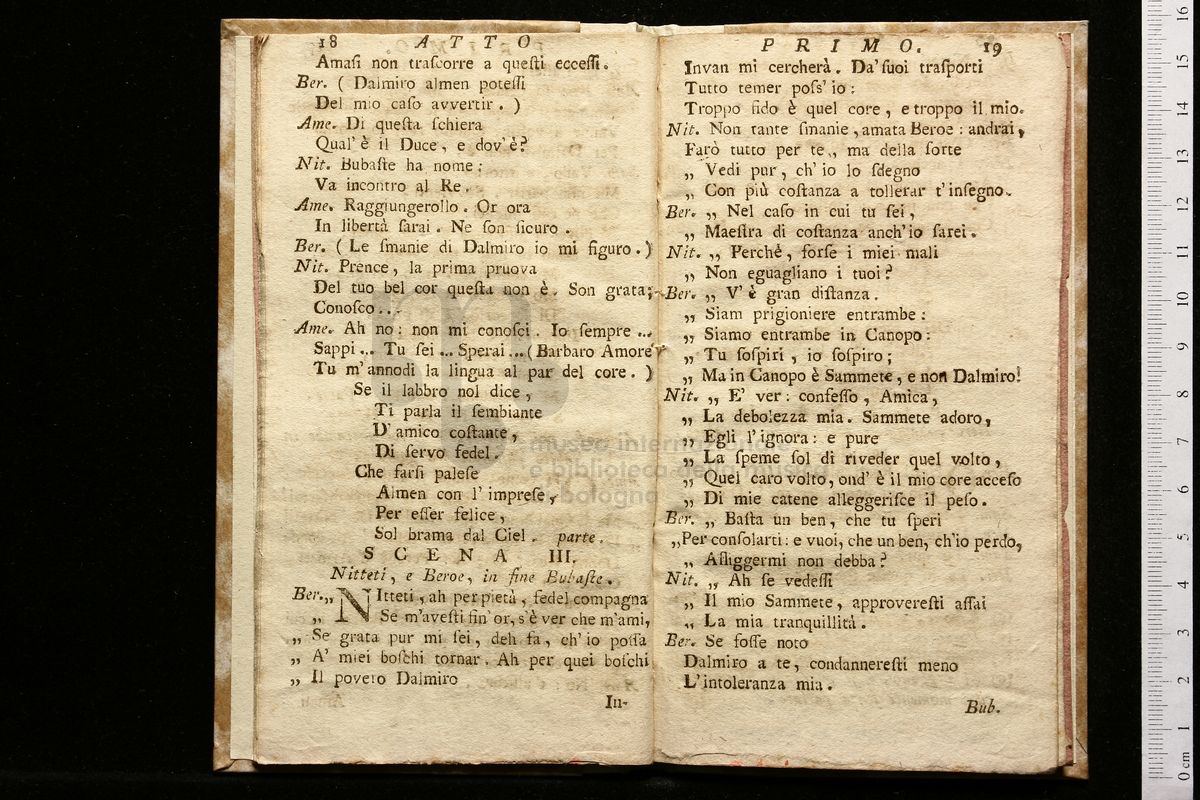 18 ATTO
Amasi non traſcorre a queſti ecceſſi.
Ber. ( Dalmiro almen poteſſi
Del mio caſo avvertir. )
Ame. Di queſta ſchiera
Qual' è il Duce, e dov' è?
Nit. Bubaſte ha nome:
Va incontro al Re.
Ame. Raggiungerollo. Or ora
In libertà ſarai. Ne ſon ſicuro.
Ber. ( Le ſmanie di Dalmiro io mi figuro. )
Nit. Prence, la prima pruova
Del tuo bel cor queſta non è. Son grata;
Conoſco...
Ame. Ah no: non mi conoſci. Io ſempre ...
Sappi ... Tu ſei ... Sperai ... ( Barbaro Amore
Tu m' annodi la lingua al par del core. )
Se il labbro nol dice,
Ti parla il ſembiante
D' amico coſtante,
Di ſervo fedel.
Che farſi paleſe
Almen con l' impreſe,
Per eſſer felice,
Sol brama dal Ciel. parte.
SCENA III.
Nitteti, e Beroe, in fine Bubaſte.
Ber. „ NItteti, ah per pietà, fedel compagna
„ Se m'aveſti fin' or, s'è ver che m'ami,
„ Se grata pur mi ſei, deh fa, ch' io poſſa
„ A' miei boſchi tornar. Ah per quei boſchi
„ Il povero Dalmiro
In-
PRIMO. 19
Invan mi cercherà. Da' ſuoi traſporti
Tutto temer poſs' io:
Troppo fido è quel core, e troppo il mio.
Nit. Non tante ſmanie, amata Beroe: andrai,
Farò tutto per te, ma della ſorte
„ Vedi pur, ch' io lo ſdegno
„ Con più coſtanza a tollerar t' inſegno.
Ber. „ Nel caſo in cui tu ſei,
„ Maeſtra di coſtanza anch' io ſarei.
Nit. „ Perchè, forſe i miei mali
„ Non eguagliano i tuoi?
Ber. „ V' è gran diſtanza.
„ Siam prigioniere entrambe:
„ Siamo entrambe in Canopo:
„ Tu ſoſpiri, io ſoſpiro;
„ Ma in Canopo è Sammete, e non Dalmiro!
Nit. „ E' ver: confeſſo, Amica,
„ La debolezza mia. Sammete adoro,
„ Egli l' ignora: e pure
„ La ſpeme ſol di riveder quel volto,
„ Quel caro volto, ond' è il mio core acceſo
„ Di mie catene alleggeriſce il peſo.
Ber. „ Baſta un ben, che tu ſperi
„ Per conſolarti: e vuoi, che un ben, ch'io perdo,
„ Affliggermi non debba?
Nit. „ Ah ſe vedeſſi
„ Il mio Sammete, approvereſti aſſai
„ La mia tranquillità.
Ber. Se foſſe noto
Dalmiro a te, condannereſti meno
L' intoleranza mia.
Bub.
museo internazionale
e biblioteca della musica
bologna
0 cm 1 2 3 4 5 6 7 8 9 10 11 12 13 14 15 16